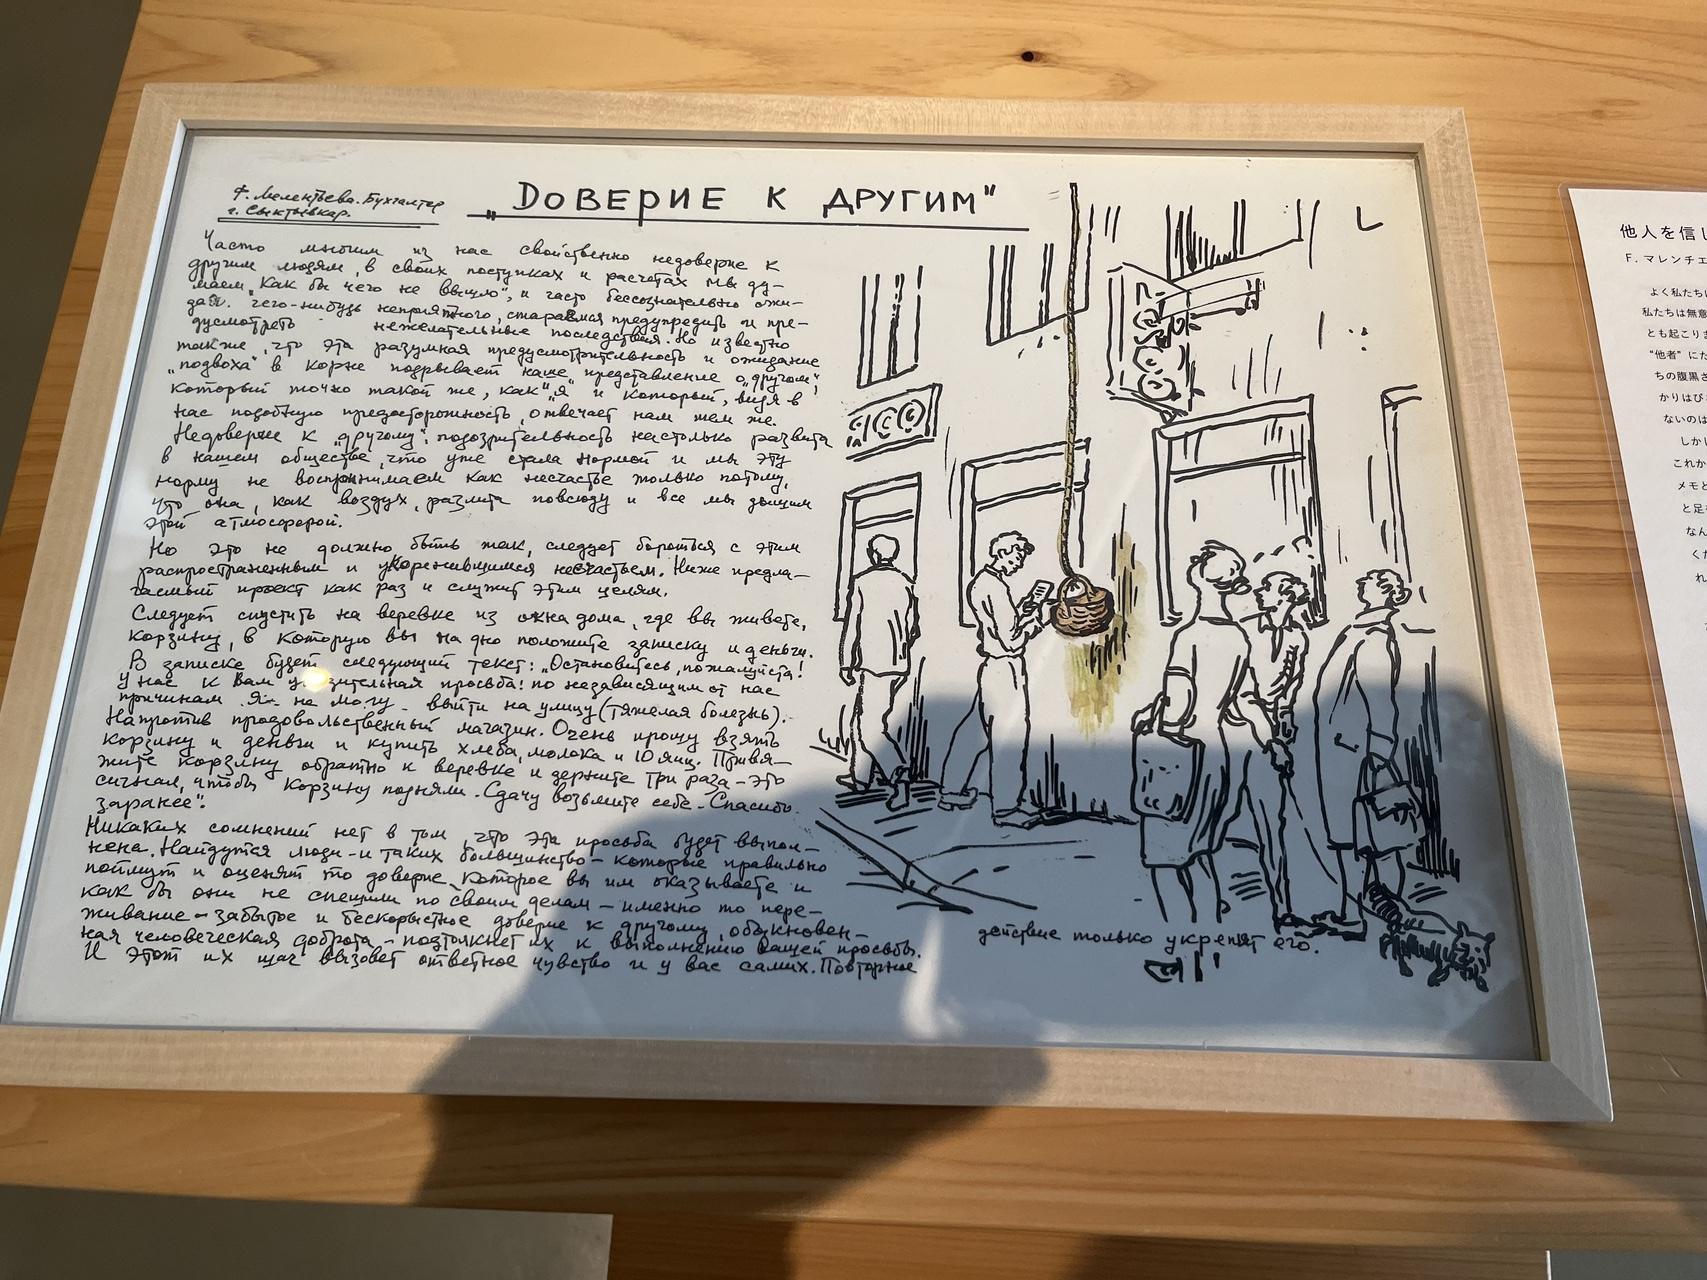 Ф. Мелентьева. Бухгалтер
г. Сыктывкар.
„ДОВЕРИЕ К ДРУГИМ"
Часто многим из нас свойственно недоверие к
другим людям, в своих поступках и расчетах мы ду-
маем „Как бы чего не вышло", и часто бессознательно ожи-
дая чего-нибудь неприятного, стараемся предупредить и пре-
дусмотреть нежелательные последствия. Но известно
также, что эта разумная предусмотрительность и ожидание
„подвоха" в корне подрывает наше представление о „другом",
который точно такой же, как „я" и который, видя в
нас подобную предосторожность, отвечает нам тем же.
Недоверие к „другому", подозрительность настолько развита
в нашем обществе, что уже стала нормой и мы эту
норму не воспринимаем как несчастье только потому,
что она, как воздух, разлита повсюду и все мы дышим
этой атмосферой.
Но это не должно быть так, следует бороться с этим
распространенным и укоренившимся несчастьем. Ниже предла-
гаемый проект как раз и служит этим целям.
Следует спустить на веревке из окна дома, где вы живете,
корзину, в которую вы на дно положите записку и деньги.
В записке будет следующий текст: „Остановитесь, пожалуйста!
У нас к Вам убедительная просьба: по независящим от нас
причинам я не могу выйти на улицу (тяжелая болезнь).
Напротив продовольственный магазин. Очень прошу взять
корзину и деньги и купить хлеба, молока и 10 яиц. Привя-
жите корзину обратно к веревке и дерните три раза - это
сигнал, чтобы корзину подняли. Сдачу возьмите себе. Спасибо
заранее".
Никаких сомнений нет в том, что эта просьба будет выпол-
нена. Найдутся люди - и таких большинство - которые правильно
поймут и оценят то доверие, которое вы им оказываете и
как бы они не спешили по своим делам - именно то пере-
живание - забытое и бескорыстное доверие к другому, обыкновен-
ная человеческая доброта - подтолкнет их к выполнению вашей просьбы.
И этот их шаг вызовет ответное чувство и у вас самих. Повторное
действие только укрепят его.
他人を信じ
F. マレンチエ
よく私たちに
私たちは無意
とも起こりま
"他者" にた
ちの腹黒さ
かりはび
ないのは
しかし
これか
メモと
と足
なん
くた
れ